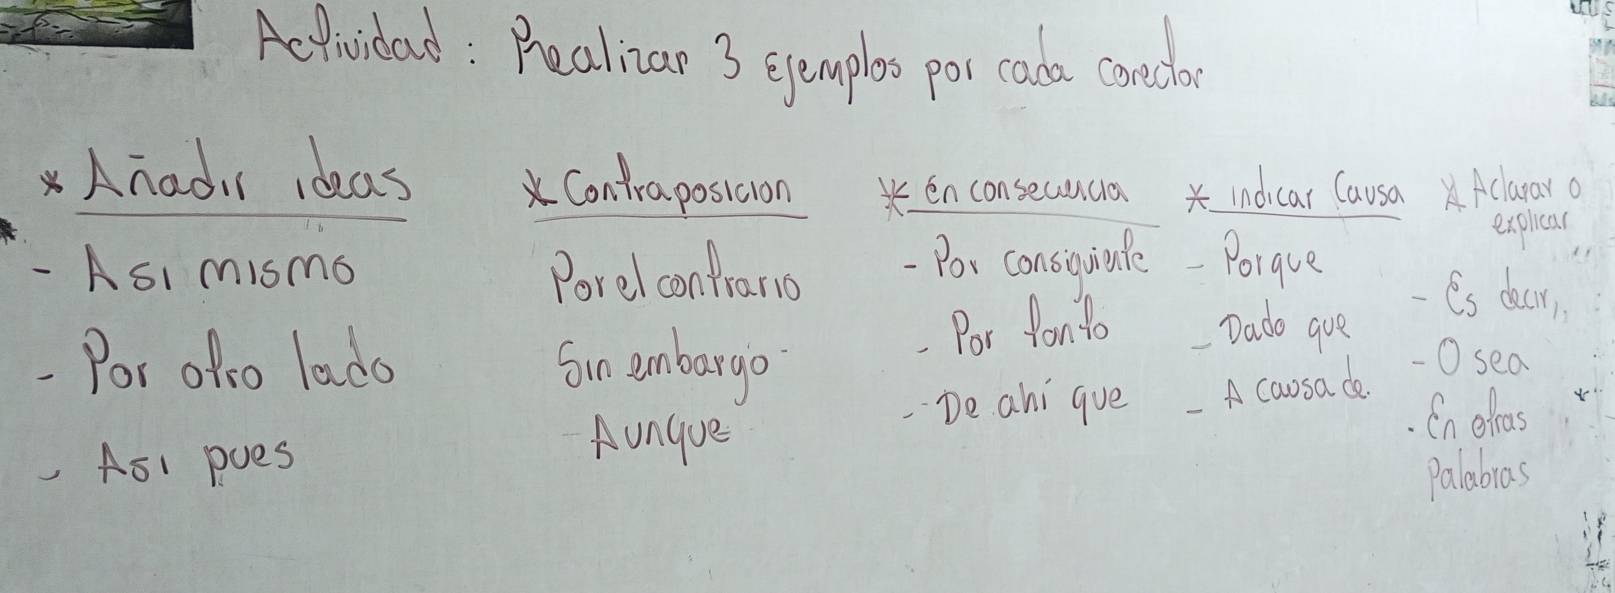 Actividad: Realizar 3 ejemplos por cada corector
* Añadir ideas
- Asi mismo
- Por otro lado
- Asi pues
* Contraposicion
Por el contrario
Sin embargo
- Aunque
* En consecuencia
- Por consiguiente
- Por tanto
- De ahi que
* indicar Causa
- Porque
- Dado que
- A causa de.
* Aclarar o
explicar
- Es decir,
- O sea
- En otras
Palabras